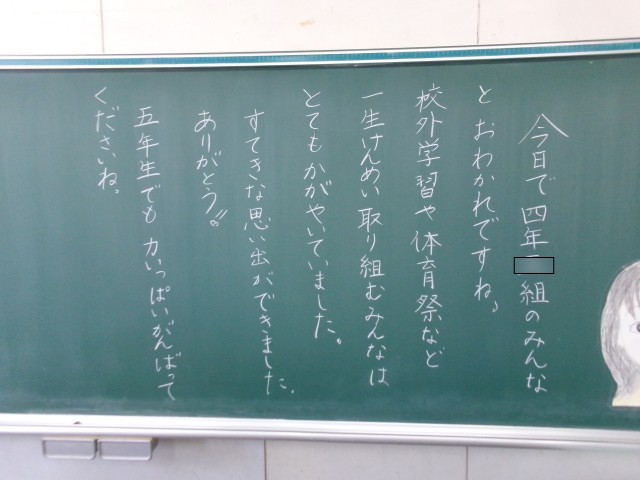 今日で四年組のみんな
とおわかれですね。
校外学習や体育祭など
一生けんめい取り組むみんなは
とてもかがやいていました。
すてきな思い出ができました。
ありがとう!!
五年生でも力いっぱいがんばって
くださいね。